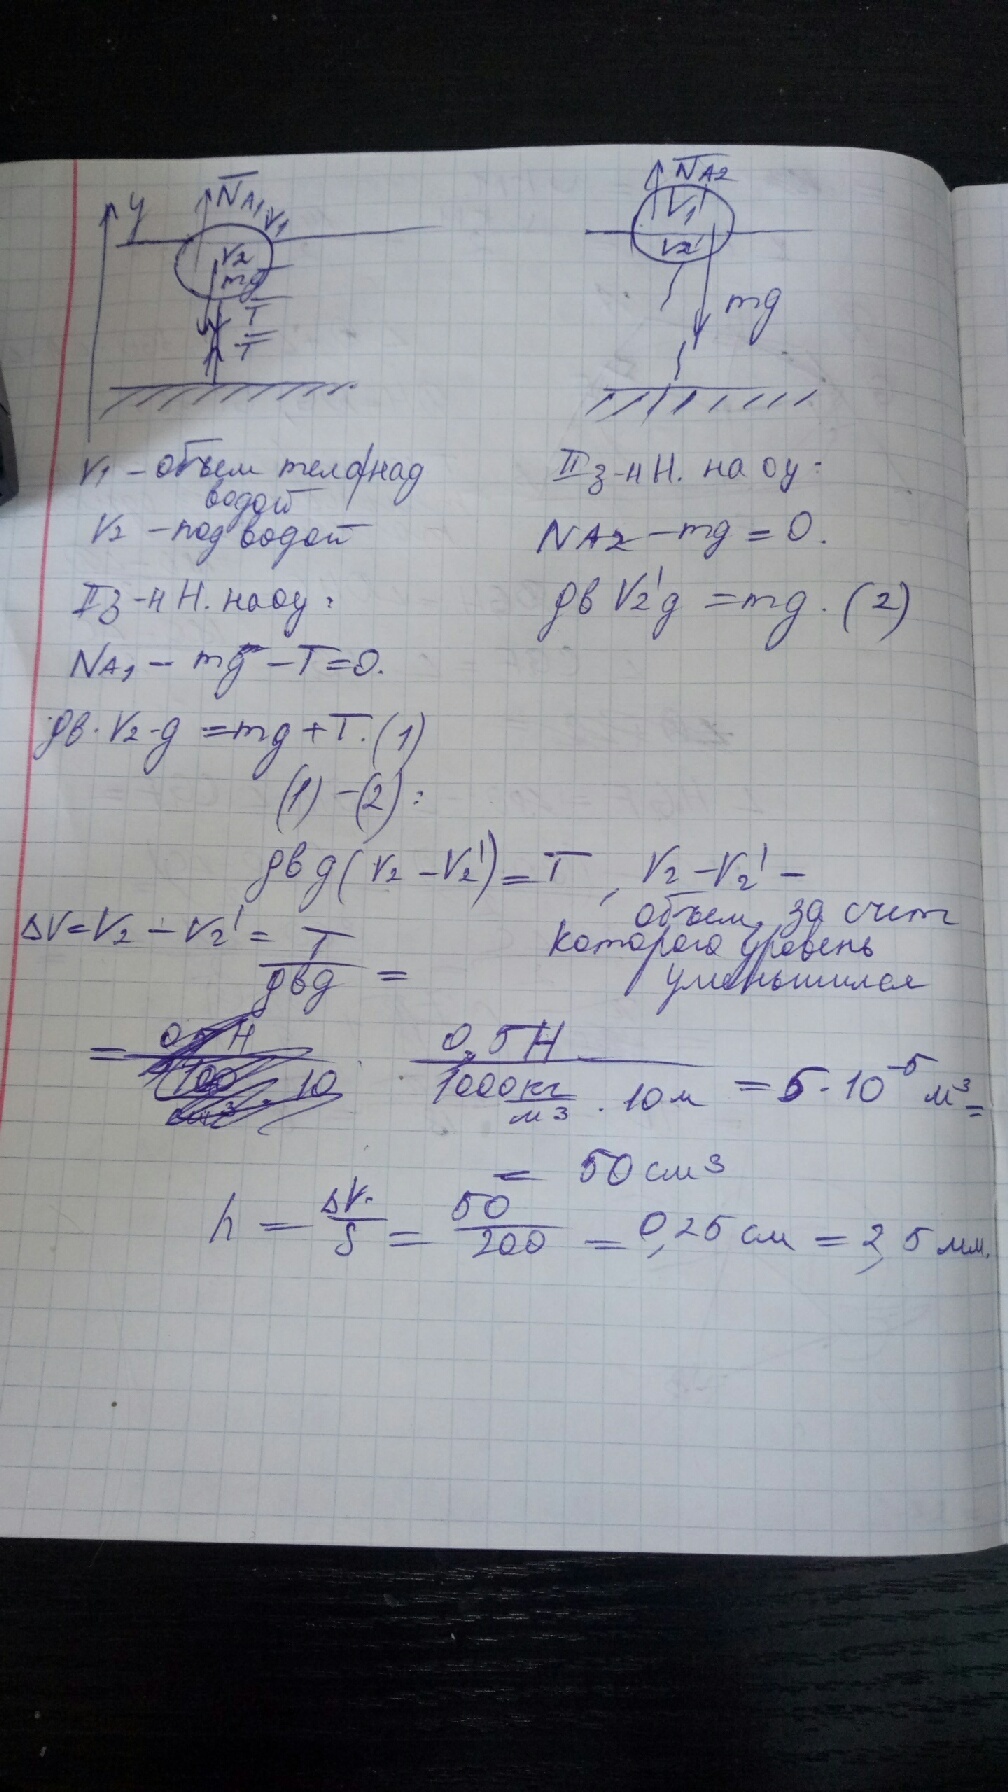 y
N̅A1 V1
V2
mg
T̅
T̅
N̅A2
V1'
V2'
mg
V1 – объем тела над
водой
V2 – под водой
II з-н Н. на оу:
NA1 – mg – T = 0.
ρв · V2 · g = mg + T. (1)
II з-н Н. на оу:
NA2 – mg = 0.
ρв V2' g = mg. (2)
(1) – (2):
ρв g (V2 – V2') = T , V2 – V2' –
объем, за счет
которого уровень
уменьшился
ΔV = V2 – V2' = T / ρвg =
= 0,5Н / 1000 кг/м3 · 10 м = 5 · 10⁻⁵ м³ =
= 50 см3
h = ΔV / S = 50 / 200 = 0,25 см = 2,5 мм.